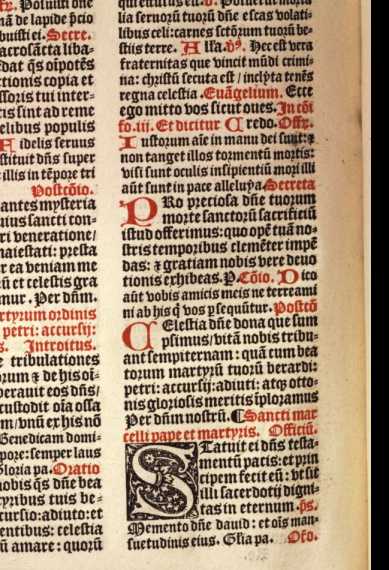 fx. Posuisti dñe
nã de lapide p̃cio
buisti ei. Secre.
acrosãcta liba-
dat q̃s oĩpotẽs
ctionis copia et
ssoris tui inter-
is sint ad reme
elibus populis
idelis seruus
stituit dñs super
illis in tẽpore tri
Postcõio.
antes mysteria
uius sancti con-
ri veneratione/
maiestati: presta
er ea veniam me
ũ et celestis gra
mur. Per dũm.
rtyrum ordinis
petri: accursij:
s. Introitus.
e tribulationes
orum ⁊ de his oĩ-
berauit eos dñs/
custodit oĩa ossa
m/vnũ ex his nõ
Benedicam domi-
pore: semper laus
Gloria pa. Oratio
nobis q̃s dñe bea
tyribus tuis be-
cursio: adiuto: et
entibus: celestia
ũ amare: quorũ
lia seruorũ tuorũ dñe escas volati-
libus celi: carnes sctõrum tuorũ be-
stijs terre. Alla. ṽs. Hec est vera
fraternitas que vincit mũdi crimi-
na: christũ secuta est/ inclyta tenẽs
regna celestia. Euãgelium. Ecce
ego mitto vos sicut oues. In cõi
fo. iii. Et dicitur Credo. Offx.
Iustorum aĩe in manu dei sunt: ⁊
non tanget illos tormentũ mortis:
visi sunt oculis insipientiũ mori illi
aũt sunt in pace alleluya. Secreta
PRo preciosa dñe tuorum
morte sanctorũ sacrificiũ
istud offerimus: quo opẽ tuã no-
stris temporibus clemẽter impẽ
das: ⁊ gratiam nobis vere deuo
tionis exhibeas. P. Cõio. Dico
aũt vobis amicis meis ne terreami
ni ab his q̃ vos p̃sequũtur. Postcõ
CElestia dñe dona que sum
psimus/vitã nobis tribu-
ant sempiternam: quã cum bea
torum martyrũ tuorũ berardi:
petri: accursij: adiuti: atq̃ otto-
nis gloriosis meritis ĩploramus
Per dũm nostrũ. ¶Sancti mar
celli pape et martyris. Officiũ.
STatuit ei dñs testa-
mentũ pacis: et prin
cipem fecit eũ: vt sit
illi sacerdotij digni-
tas in eternum. p̃s.
Memento dñe dauid: et oĩs man-
suetudinis eius. Glĩa pa. Orõ.